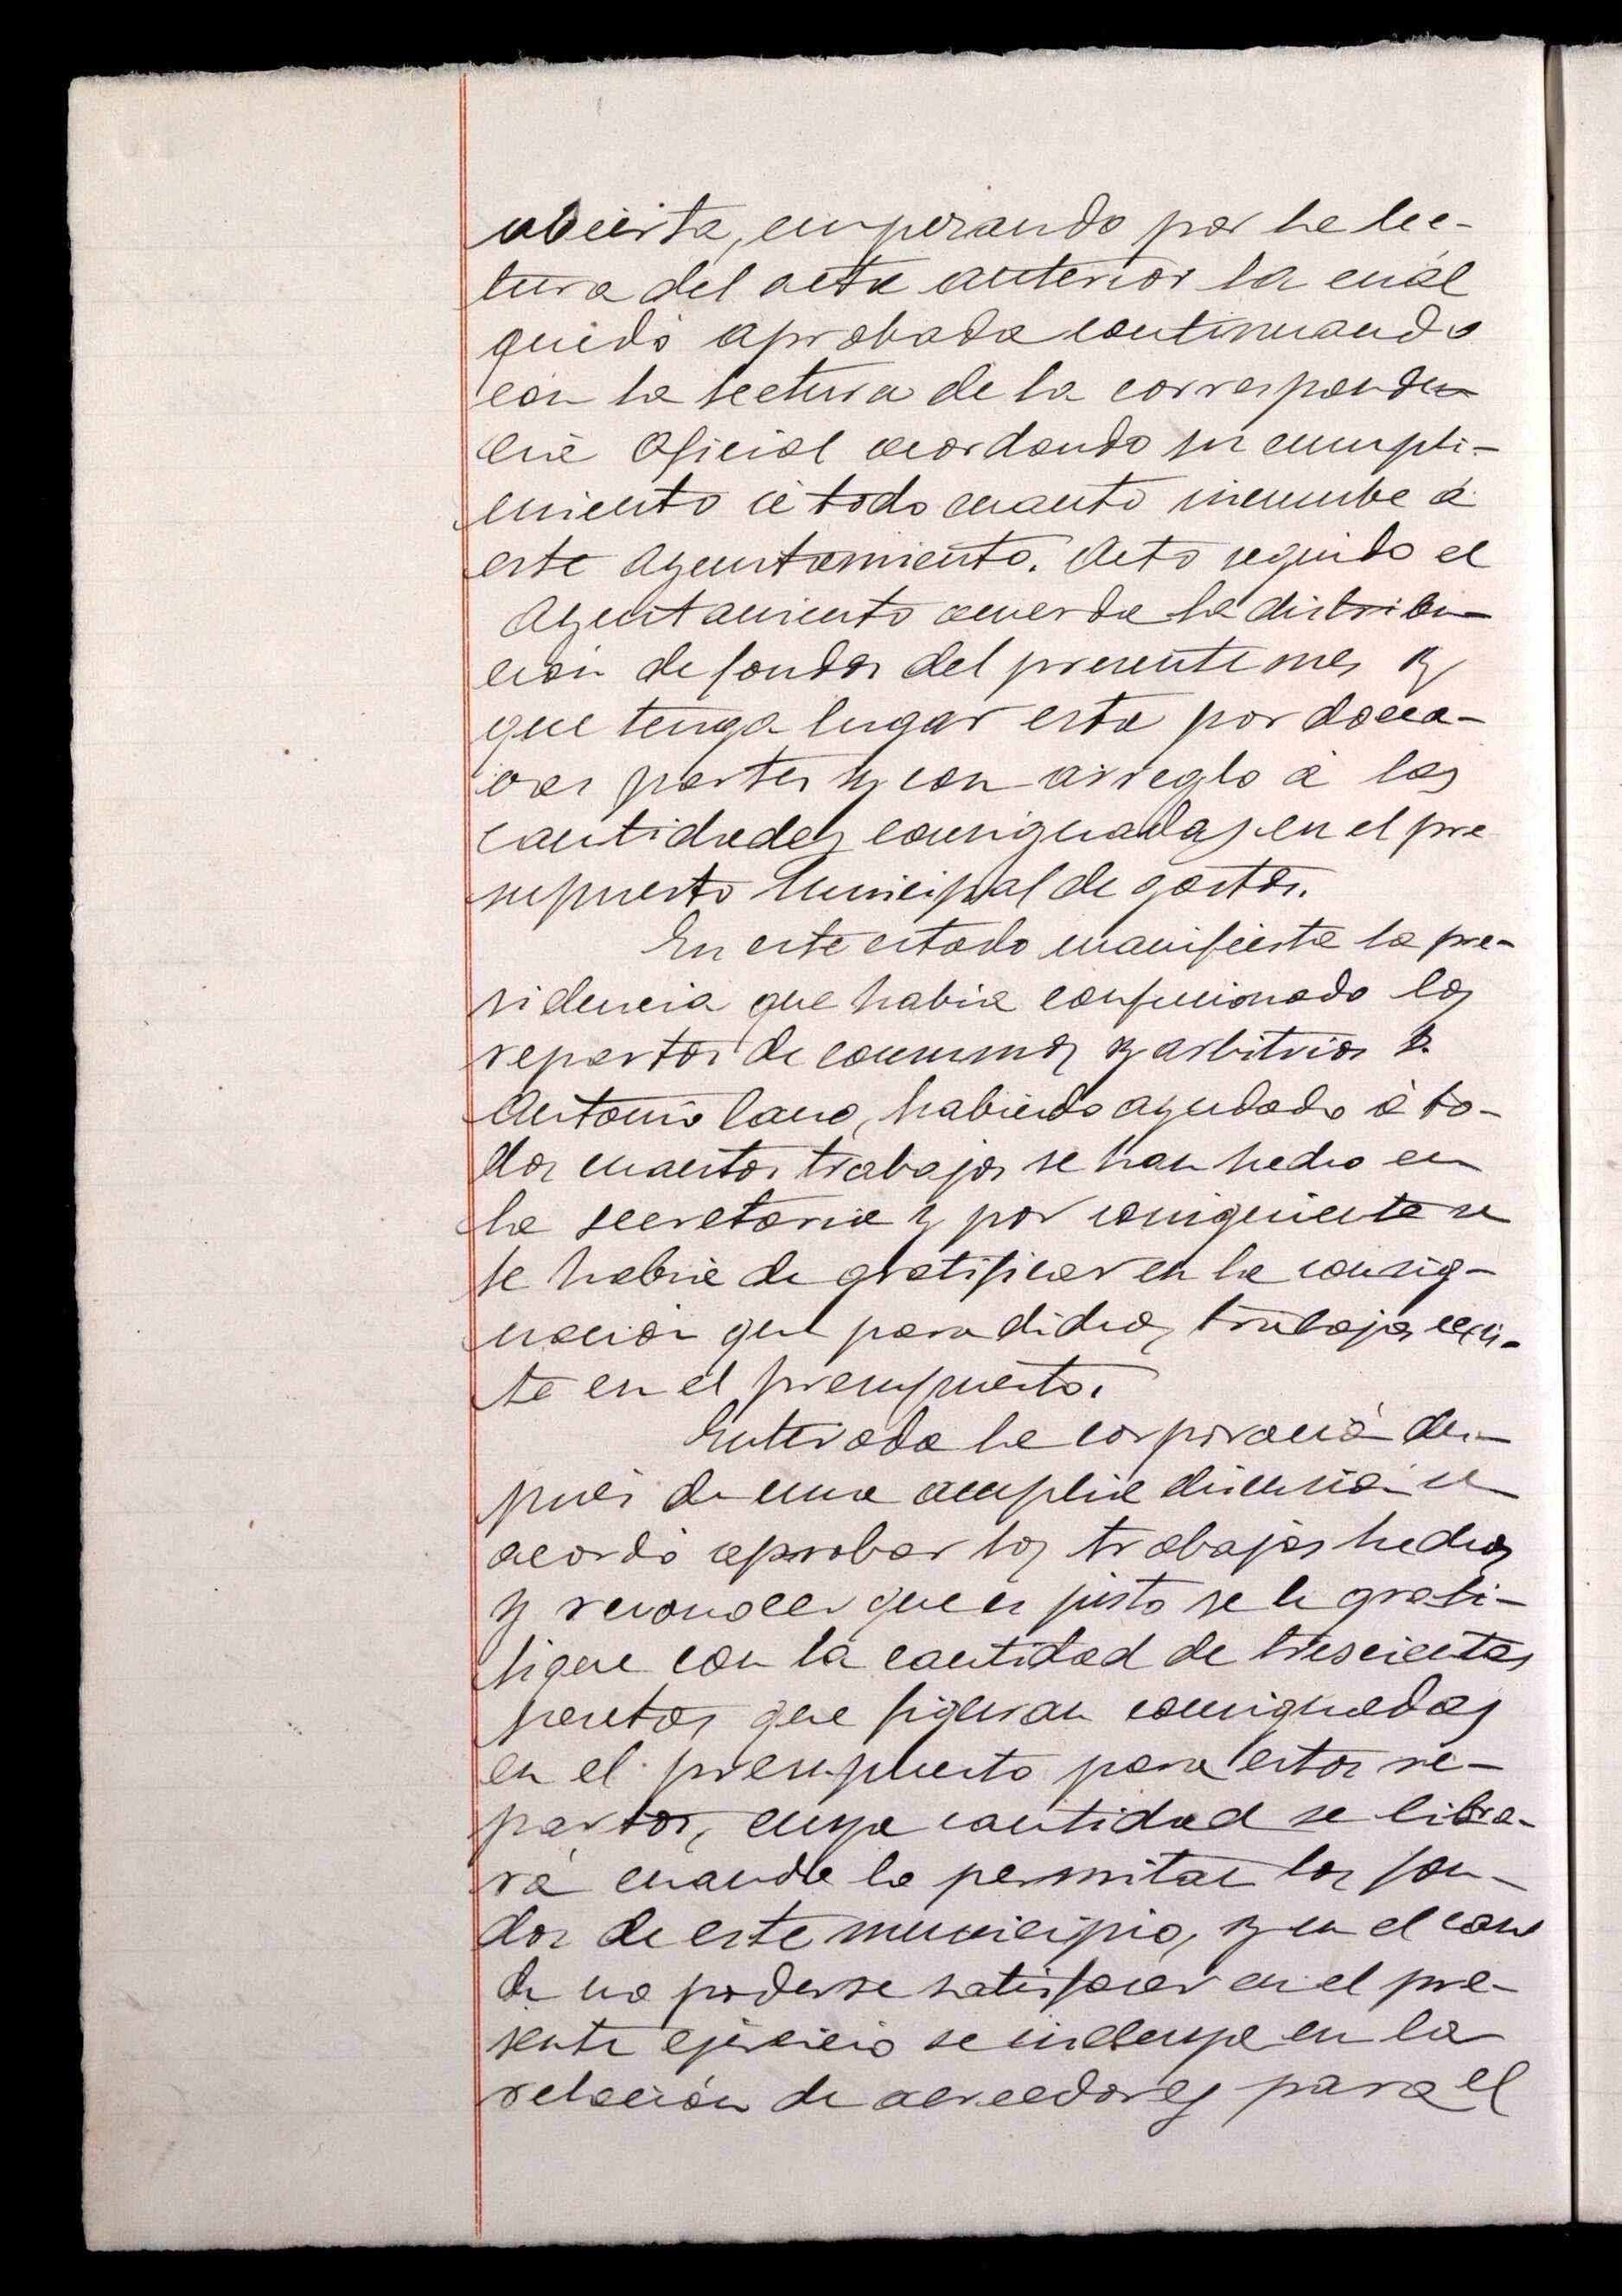 abierta, emperando por la lec-
tura del acta anterior la cuál
quedó aprobada continuando
con la lectura de la corresponden
cia Oficial acordando su cumpli-
miento á todo cuanto incumbe á
este Ayuntamiento. Acto seguido el
Ayuntamiento acuerda la distribu-
ción de fondos del presente mes y
que tenga lugar esta por doceá-
vas partes y con arreglo á las
cantidades consignadas en el pre
supuesto Municipal de gastos.
En este estado manifiesta la pre-
sidencia que habia confecionado los
repartos de consumos y arbitrios D.
Antonio Cano, habiendo ayudado á to-
dos cuantos trabajos se han hecho en
la secretaria y por consiguiente se
le habia de gratificar en la consig-
nación que para dichos trabajos exis-
te en el presupuesto.
Enterada la corporació des-
pués de una amplia discusión se
acordó aprobar los trabajos hechos
y reconocer que es justo se le grati-
fique con la cantidad de trescientas
pesetas que figuran consignadas
en el presupuesto para estos re-
partos, cuya cantidad se libra-
rá cuando lo permitan los fon-
dos de este municipio, y en el caso
de no poderse satisfacer en el pre-
sente ejercicio se incluya en la
relación de acreedores para el